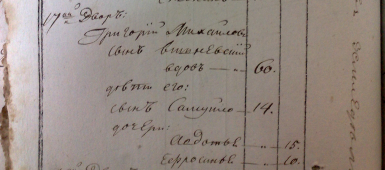 17го Дворъ:
Григорiй Михайлов
сынъ Вишневскiй
вдовъ — 60.
дѣти его:
сынъ Самуйло — 14.
дочери:
Авдотья — 15.
Ефросинья — 10.